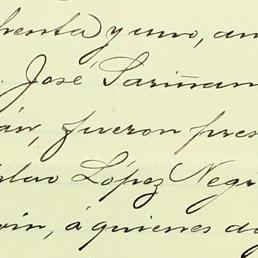 henta y uno, an
. José Sariñan
án, fueron pres
slao López Negr
ín, á quienes do